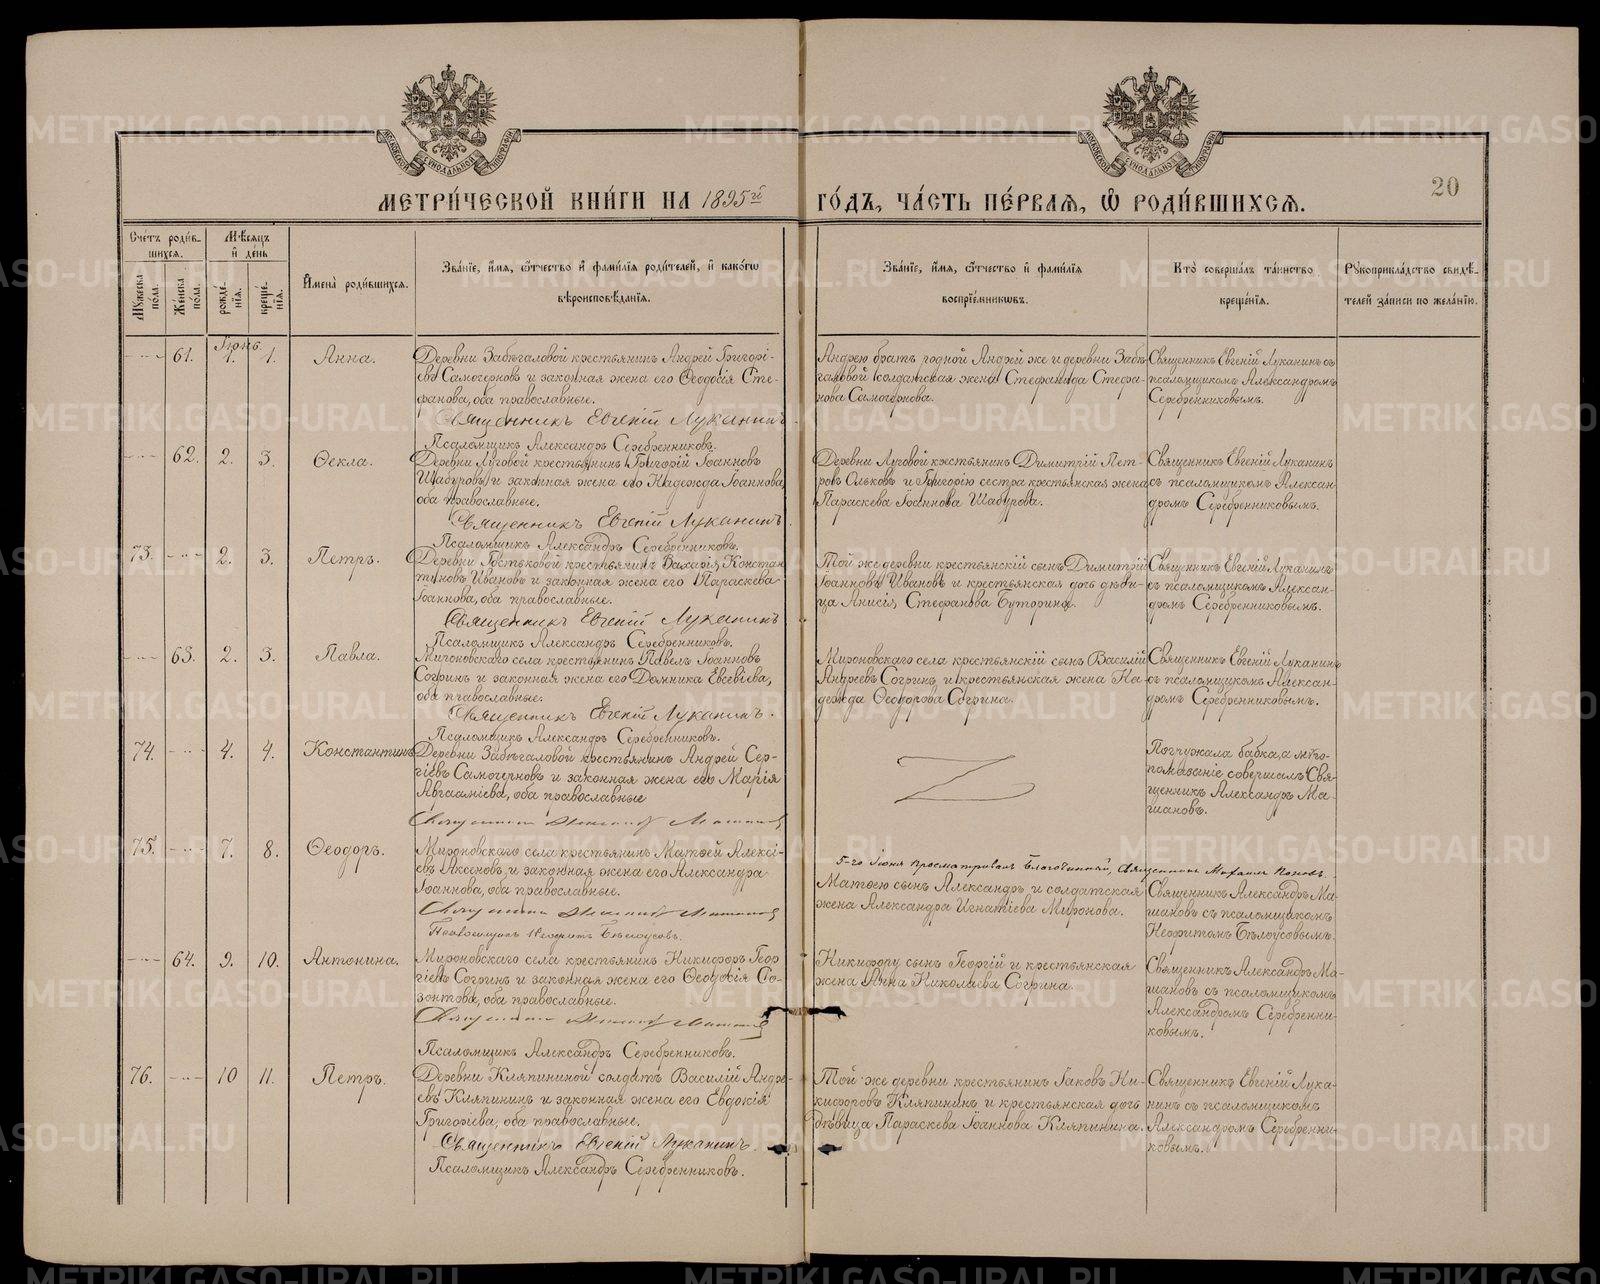 МОСКОВСКОЙ СѴНОДАЛЬНОЙ ТИПОГРАФІИ
МОСКОВСКОЙ СѴНОДАЛЬНОЙ ТИПОГРАФІИ
20
МЕТРИ́ЧЕСКОЙ КНИ́ГИ НА 1895й ГО́ДЪ, ЧА́СТЬ ПЕ́РВАѦ, Ѡ РОДИ́ВШИХСѦ.
Сче́тъ роди́в-
шихсѧ.
Мꙋжеска по́ла.
Же́нска по́ла.
Мѣ́сѧцъ
и де́нь
рожде́нїѧ.
креще́нїѧ.
И҆мена̀ роди́вшихсѧ.
Зва́нїе, и҆́мѧ, ѻ҆́тчество и҆ фами́лїѧ роди́телей, и҆ како́гѡ
вѣроисповѣ́данїѧ.
Зва́нїе, и҆́мѧ, ѻ҆́тчество и҆ фами́лїѧ
воспрїе́мникѡвъ.
Кто̀ соверша́лъ та́инство
креще́нїѧ.
Рꙋкоприкла́дство свидѣ́-
телей за́писи по жела́нїю.
Іюнь.
61. 1. 1. Анна.
Деревни Забѣгаловой крестьянинъ Андрей Григорі-
евъ Самочерновъ и законная жена его Ѳеодосія Сте-
фанова, оба православные.
Священникъ Евгеній Луканинъ.
Псаломщикъ Александръ Серебренниковъ.
Андрею братъ родной Андрей же и деревни Забѣ-
галовой солдатская жена Стефанида Стефа-
нова Самочернова.
Священникъ Евгеній Луканинъ съ
псаломщикомъ Александромъ
Серебренниковымъ.
62. 2. 3. Ѳекла.
Деревни Луговой крестьянинъ Григорій Іоанновъ
Шабуровъ и законная жена его Надежда Іоаннова,
оба православные.
Священникъ Евгеній Луканинъ.
Псаломщикъ Александръ Серебренниковъ.
Деревни Луговой крестьянинъ Димитрій Пет-
ровъ Ольковъ и Григорію сестра крестьянская жена
Параскева Іоаннова Шабурова.
Священникъ Евгеній Луканинъ
съ псаломщикомъ Алексан-
дромъ Серебренниковымъ.
73. 2. 3. Петръ.
Деревни Гостьковой крестьянинъ Захарій Констан-
тиновъ Ивановъ и законная жена его Параскева
Іоаннова, оба православные.
Священникъ Евгеній Луканинъ
Псаломщикъ Александръ Серебренниковъ.
Той же деревни крестьянскій сынъ Димитрій
Іоанновъ Ивановъ и крестьянская дочь дѣви-
ца Анисія Стефанова Буторина.
Священникъ Евгеній Луканинъ
съ псаломщикомъ Алексан-
дромъ Серебренниковымъ.
63. 2. 3. Павла.
Мироновскаго села крестьянинъ Павелъ Іоанновъ
Согринъ и законная жена его Домника Евсевіева,
оба православные.
Священникъ Евгеній Луканинъ.
Псаломщикъ Александръ Серебренниковъ.
Мироновскаго села крестьянскій сынъ Василій
Андреевъ Согринъ и крестьянская жена На-
дежда Ѳеодорова Согрина.
Священникъ Евгеній Луканинъ
съ псаломщикомъ Алексан-
дромъ Серебренниковымъ.
74. 4. 4. Константинъ
Деревни Забѣгаловой крестьянинъ Андрей Сер-
гіевъ Самочерновъ и законная жена его Марія
оба православные
Священникъ Александръ Машановъ
Погружала бабка, а мѵро-
помазаніе совершалъ Свя-
щенникъ Александръ Ма-
шановъ.
75. 7. 8. Ѳеодоръ.
Мироновскаго села крестьянинъ Матѳей Алексі-
евъ Аксеновъ и законная жена его Александра
Іоаннова, оба православные.
Священникъ Александръ Машановъ
Псаломщикъ Неофитъ Бѣлоусовъ.
5-го Іюня просматривалъ Благочинный, Священникъ Михаилъ Поповъ.
Матѳею сынъ Александръ и солдатская
жена Александра Игнатіева Миронова.
Священникъ Александръ Ма-
шановъ съ псаломщикомъ
Неофитомъ Бѣлоусовымъ.
64. 9. 10. Антонина.
Мироновскаго села крестьянинъ Никифоръ Геор-
гіевъ Согринъ и законная жена его Ѳеодосія Со-
зонтова, оба православные.
Священникъ Александръ Машановъ
Псаломщикъ Александръ Серебренниковъ.
Никифору сынъ Георгій и крестьянская
жена Анна Николаева Согрина.
Священникъ Александръ Ма-
шановъ съ псаломщикомъ
Александромъ Серебренни-
ковымъ.
76. 10 11. Петръ.
Деревни Кляпининой солдатъ Василій Андре-
евъ Кляпининъ и законная жена его Евдокія
Григоріева, оба православные.
Священникъ Евгеній Луканинъ.
Псаломщикъ Александръ Серебренниковъ.
Той же деревни крестьянинъ Іаковъ Ни-
кифоровъ Кляпининъ и крестьянская дочь
дѣвица Параскева Іоаннова Кляпинина.
Священникъ Евгеній Лука-
нинъ съ псаломщикомъ
Александромъ Серебренни-
ковымъ.
METRIKI.GASO-URAL.RU